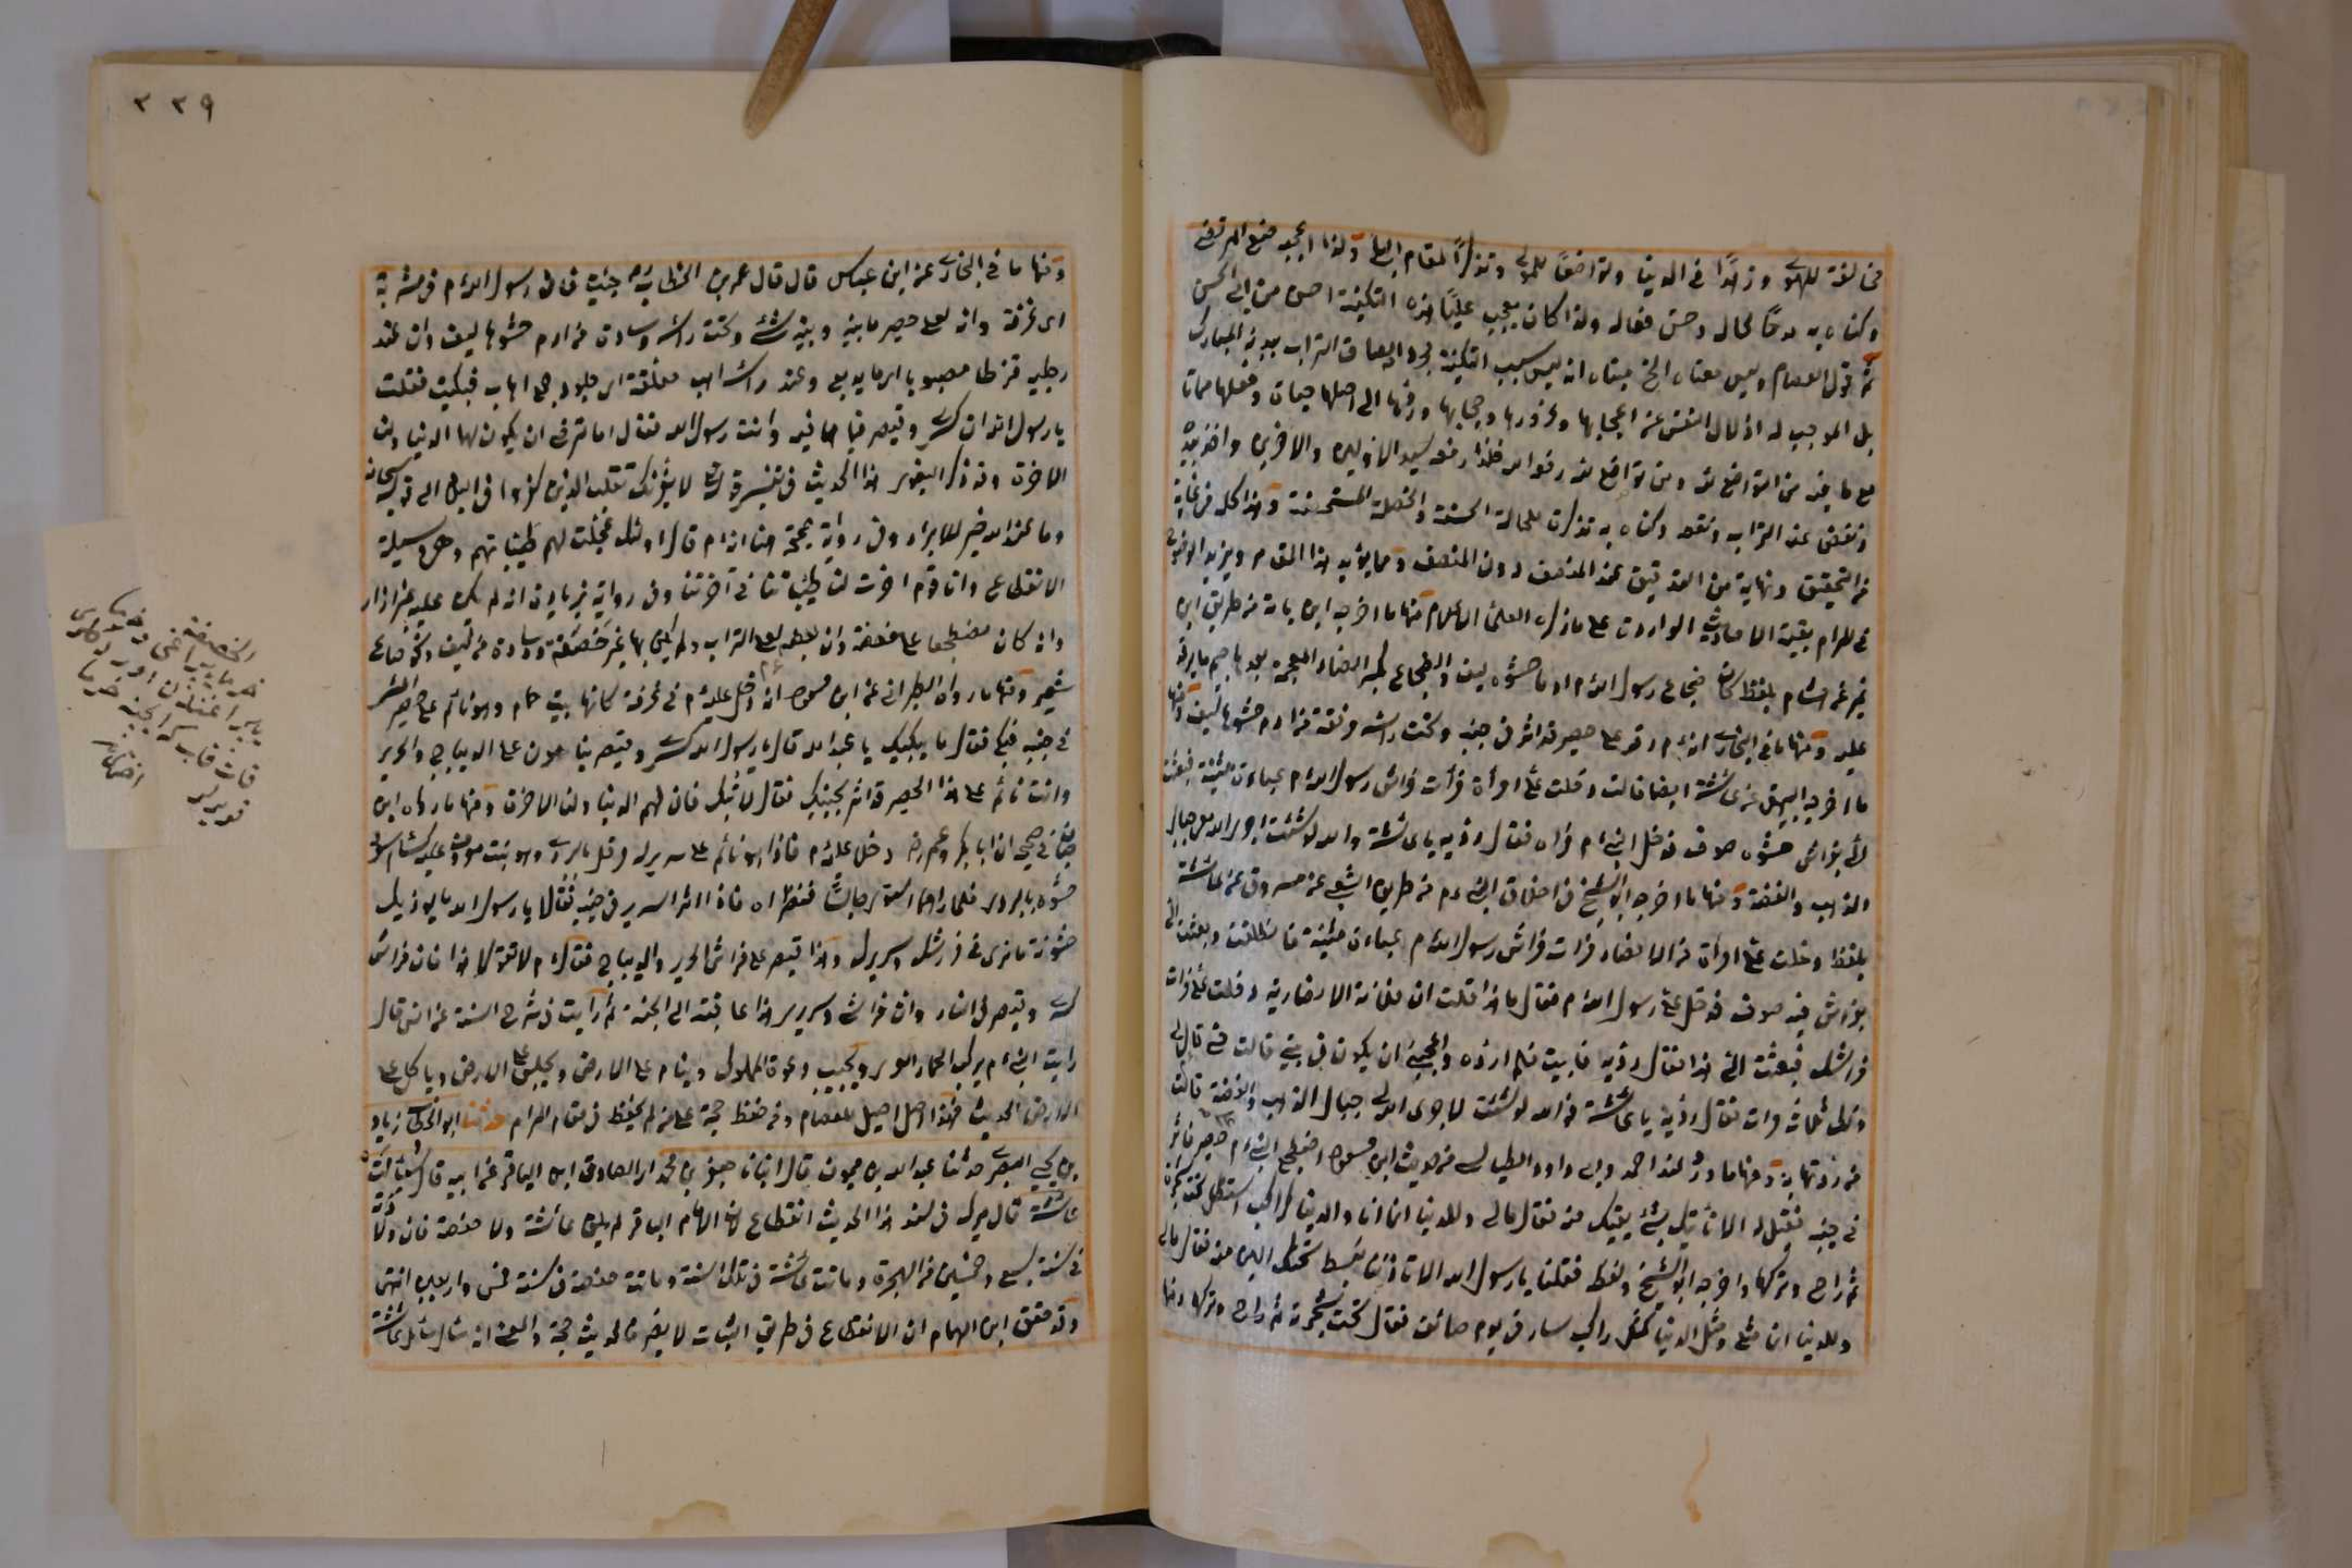 مخالفة للهوى وزهدًا في الدنيا وتواضعًا للمولى وتذكرًا لمقام البلى ولذا اعجبه صنع المرتضى
وكناه به مدحًا لحاله وحسن فعاله ولذا كان يعجب عليًا هذه التكنية احسن من ابي الحسن
ثم قول العصام وليس معناه الخ مبناه انه ليس سبب التكنية مجرد الصاق التراب ببدنه المبارك
بل الموجب له اذلال النفس عن اعجابها وغرورها وحجابها وردها الى اصلها حياة وفعلها مماتا
مع ما فيه من التواضع لله ومن تواضع لله رفعه الله فلذا رفعه سيد الاولين والاخرين واخذ بيده
ونفض عنه التراب ونفعه وكناه به تذكرة للحالة الحسنة والخصلة المستحسنة وهذا كله في غاية
من التحقيق ونهاية من التدقيق عند المنصف دون المتعصف ومما يؤيد هذا المقام ويزيد الوضوح
في المرام بقية الاحاديث الواردة على ما ذكره العلماء الاعلام منها ما اخرجه ابن ماجة من طريق ابن
نمير عن هشام بلفظ كان ضجاع رسول الله م ادما حشوه ليف والضجاع بكسر الضاد المعجمة بعدها جيم ما يرقد
عليه ومنها ما في البخاري انه م رقد على حصير قد اثر في جنبه وتحت راسه مرفقة من ادم حشوها ليف ومنها
ما اخرجه البيهقي عن عائشة ايضا قالت دخلت علي امرأة فرأت فراش رسول الله م عباءة مثنية فبعثت
الي بفراش حشوه صوف فدخل النبي م فراه فقال رديه يا عائشة والله لو شئت اجرى الله معي جبال
الذهب والفضة ومنها ما اخرجه ابو الشيخ في اخلاق النبي م من طريق الشعبي عن مسروق عن عائشة
بلفظ دخلت علي امرأة من الانصار فرأت فراش رسول الله م عباءة مثنية فانطلقت وبعثت الي
بفراش فيه صوف فدخل علي رسول الله م فقال ما هذا قلت ان فلانة الانصارية دخلت علي فرأت
فراشك فبعثت الي هذا فقال رديه فابيت فلم ارده واعجبني ان يكون في بيتي قالت حتى قال لي
ذلك ثلاث مرات فقال رديه يا عائشة فوالله لو شئت لاجرى الله لي جبال الذهب والفضة قالت
فرددتها به ومنها ما ورد عند احمد وابي داود الطيالسي من حديث ابن مسعود اضطجع النبي م على حصير فاثر
في جنبه فقيل له الا نأتيك بشئ يقيك منه فقال مالي وللدنيا انما انا والدنيا كراكب استظل تحت شجرة
ثم راح وتركها واخرجه ابو الشيخ ولفظه فقلنا يا رسول الله الا تاذننا نبسط تحتك الين منه فقال مالي
وللدنيا ان مثلي ومثل الدنيا كمثل راكب سار في يوم صائف فقال تحت شجرة ثم راح وتركها ومنها
٣٣٩
ومنها ما في البخاري عن ابن عباس قال قال عمر بن الخطاب جئت فاذا رسول الله م في مشربة
اي غرفة وانه لعلى حصير ما بينه وبينه شئ وتحت راسه وسادة من ادم حشوها ليف وان عند
رجليه قرظا مصبوبا اي ما يدبغ وعند راسه اهب معلقة اي جلود جمع اهاب فبكيت فقلت
يا رسول الله ان كسرى وقيصر فيما هما فيه وانت رسول الله فقال اما ترضى ان يكون لهما الدنيا ولنا
الاخرة وقد ذكر البغوي هذا الحديث في تفسير قوله تعالى لا يغرنك تقلب الذين كفروا في البلاد الى قوله سبحانه
وما عند الله خير للابرار وفي رواية صحيحة ايضا انه م قال اولئك عجلت لهم طيباتهم وهي وسيلة
الانقطاع وانا قوم اخرت لنا طيباتنا في آخرتنا وفي رواية بزيادة انه لم يكن عليه غير ازار
وانه كان مضطجعا على خصفة وان بعضه لعلى التراب ولم يكن بها غير خصفة ووسادة من ليف ونحو صاع
شعير ومنها ما رواه الطبراني عن ابن مسعود انه دخل عليه م في غرفة كانها بيت حمام وهو نائم على حصير اثر
في جنبه فبكى فقال ما يبكيك يا عبد الله قال يا رسول الله كسرى وقيصر ينامون على الديباج والحرير
وانت نائم على هذا الحصير قد اثر بجنبك فقال لا تبك فان لهم الدنيا ولنا الاخرة ومنها ما رواه ابن
حبان في صحيحه ان ابا بكر وعمر رض دخلا عليه م فاذا هو نائم على سرير له مزمل بالبردي
حشوه بالبردي فلما راهما استوى جالسًا فنظراه فاذا اثر السرير في جنبه فقالا يا رسول الله ما يؤذيك
خشونة ما نرى في فراشك وسريرك وهذا كسرى وقيصر على فراش الحرير والديباج فقال م لا تقولا هذا فان فراش
كسرى وقيصر في النار وان فراشي وسريري هذا عاقبته الى الجنة ثم رأيت في شرح السنة عن انس قال
رايت النبي م يركب الحمار العري ويجيب دعوة المملوك وينام على الارض ويجلس على الارض وياكل على
الارض الحديث فهذا اصل اصيل للعصام ومن حفظ حجة على من لم يحفظ في مقام المرام حدثنا ابو الخطاب زياد
بن يحيى البصري حدثنا عبد الله بن ميمون قال انبانا جعفر بن محمد اي الصادق ابن الباقر عن ابيه قال سئلت
عائشة قال ميرك في سند هذا الحديث انقطاع لان الامام الباقر لم يلق عائشة ولا حفصة فان ولادته
في سنة سبع وخمسين من الهجرة وماتت عائشة في تلك السنة وماتت حفصة في سنة خمس واربعين انتهى
وقد حقق ابن الهمام ان الانقطاع في طريق الثبات لا يضر فالحديث حجة والمعنى انه سأل سائل عائشة